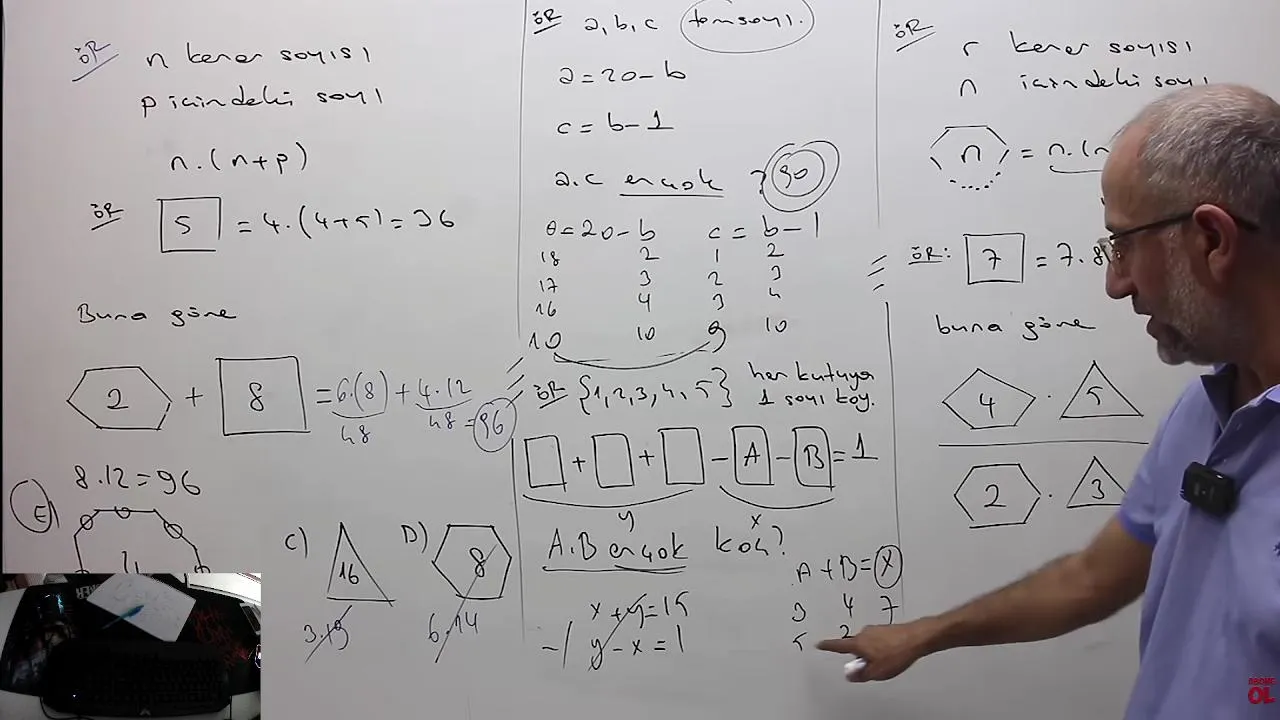 ÖR n kenar sayısı
p içindeki sayı
n.(n+p)
ÖR 5 = 4.(4+5) = 36
Buna göre
2 + 8 = 6.(8) + 4.12
48 48 = 96
8.12 = 96
E)
C) 16
3.19
D) 8
6.14
ÖR a, b, c tamsayı.
a = 20 - b
c = b - 1
a.c en çok ? 90
a = 20 - b c = b - 1
18 2 1 2
17 3 2 3
16 4 3 4
10 10 9 10
ÖR {1,2,3,4,5} her kutuya
1 sayı koy.
+ + - A - B = 1
y x
A.B en çok kaç?
x + y = 15
-1 y - x = 1
A + B = x
3 4 7
5 2
ÖR r kenar sayısı
n içindeki sayı
n = n.(n
ÖR: 7 = 7.8
buna göre
4 . 5
2 . 3
ABONE
OL